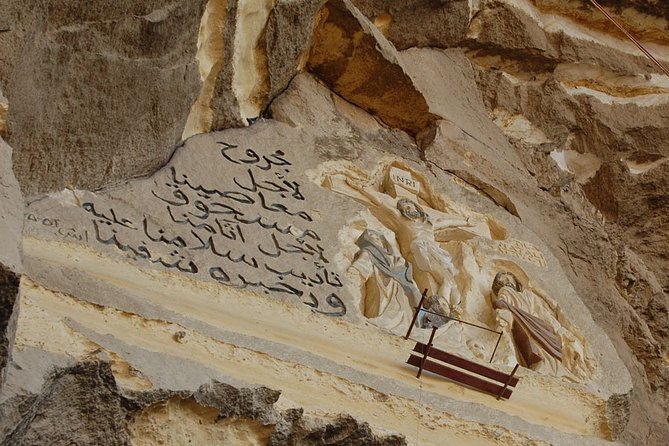 مجروح
لأجل
معاصينا
مسحوق
لأجل آثامنا
تأديب سلامنا عليه
وبحبره شفينا
INRI